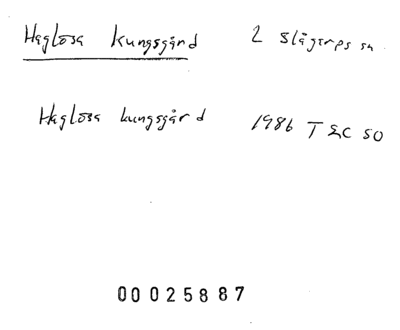 Haglösa kungsgård 2 Slågarps sn
Haglösa kungsgård 1986 T EC SO
00025887